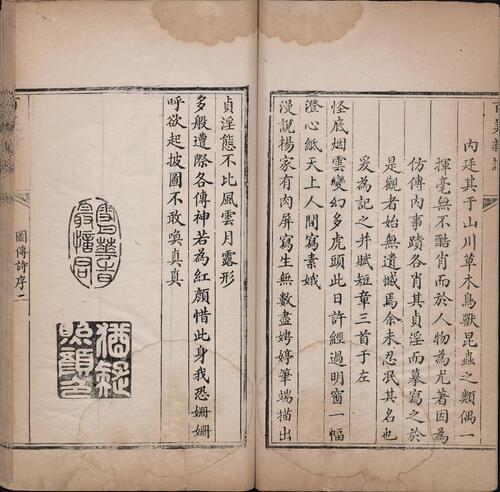 内廷其于山川草木鳥獸昆蟲之類偶一
揮毫無不酷肖而於人物為尤著因為
仿傳内事蹟各肖其貞淫而摹寫之於
是觀者始無遺憾焉余未忍泯其名也
爰為記之并賦短章三首于左
怪底烟雲變幻多虎頭此日許經過明窗一幅
澄心紙天上人間寫素娥
漫說楊家有肉屏寫生無數盡娉婷筆端描出
貞淫態不比風雲月露形
多般遭際各傳神若為紅顏惜此身我恐姍姍
呼欲起披圖不敢喚真真
猶疑
照顏色
圖傳詩序二